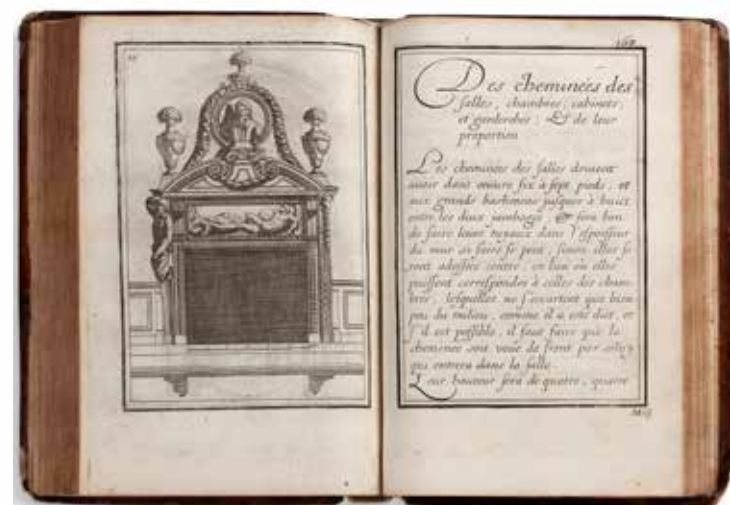 Des cheminées des
salles, chambres, cabinets,
et garderobes; Et de leur
proportion
Les cheminées des salles doivent
avoir dans œuvre six à sept pieds, et
aux grands bastimens jusques à huict
entre les deux jambages, & sera bon
de faire leurs tuyaux dans l'espoisseur
du mur si faire se peut, sinon elles se
ront adossées contre, en lieu où elles
puissent correspondre à celles des cham
bres, lesquelles ne s'écartent que bien
peu du milieu, comme il a esté dict, et
s'il est possible, il faut faire que la
cheminée soit veüe de front par celuy
qui entrera dans la salle.
Leur hauteur sera de quatre, quatre